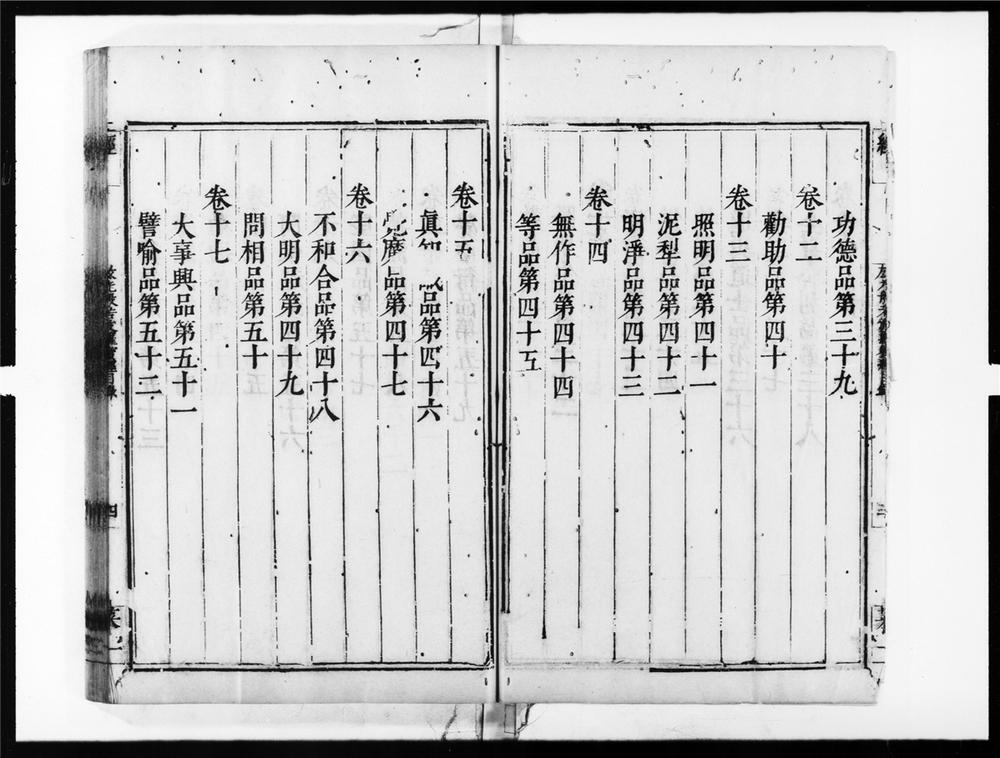 功德品第三十九
卷十二
勸助品第四十
卷十三
照明品第四十一
泥犁品第四十二
明淨品第四十三
卷十四
無作品第四十四
等品第四十五
卷十五
眞知識品第四十六
覺魔品第四十七
卷十六
不和合品第四十八
大明品第四十九
問相品第五十
卷十七
大事興品第五十一
譬喻品第五十二
經
四